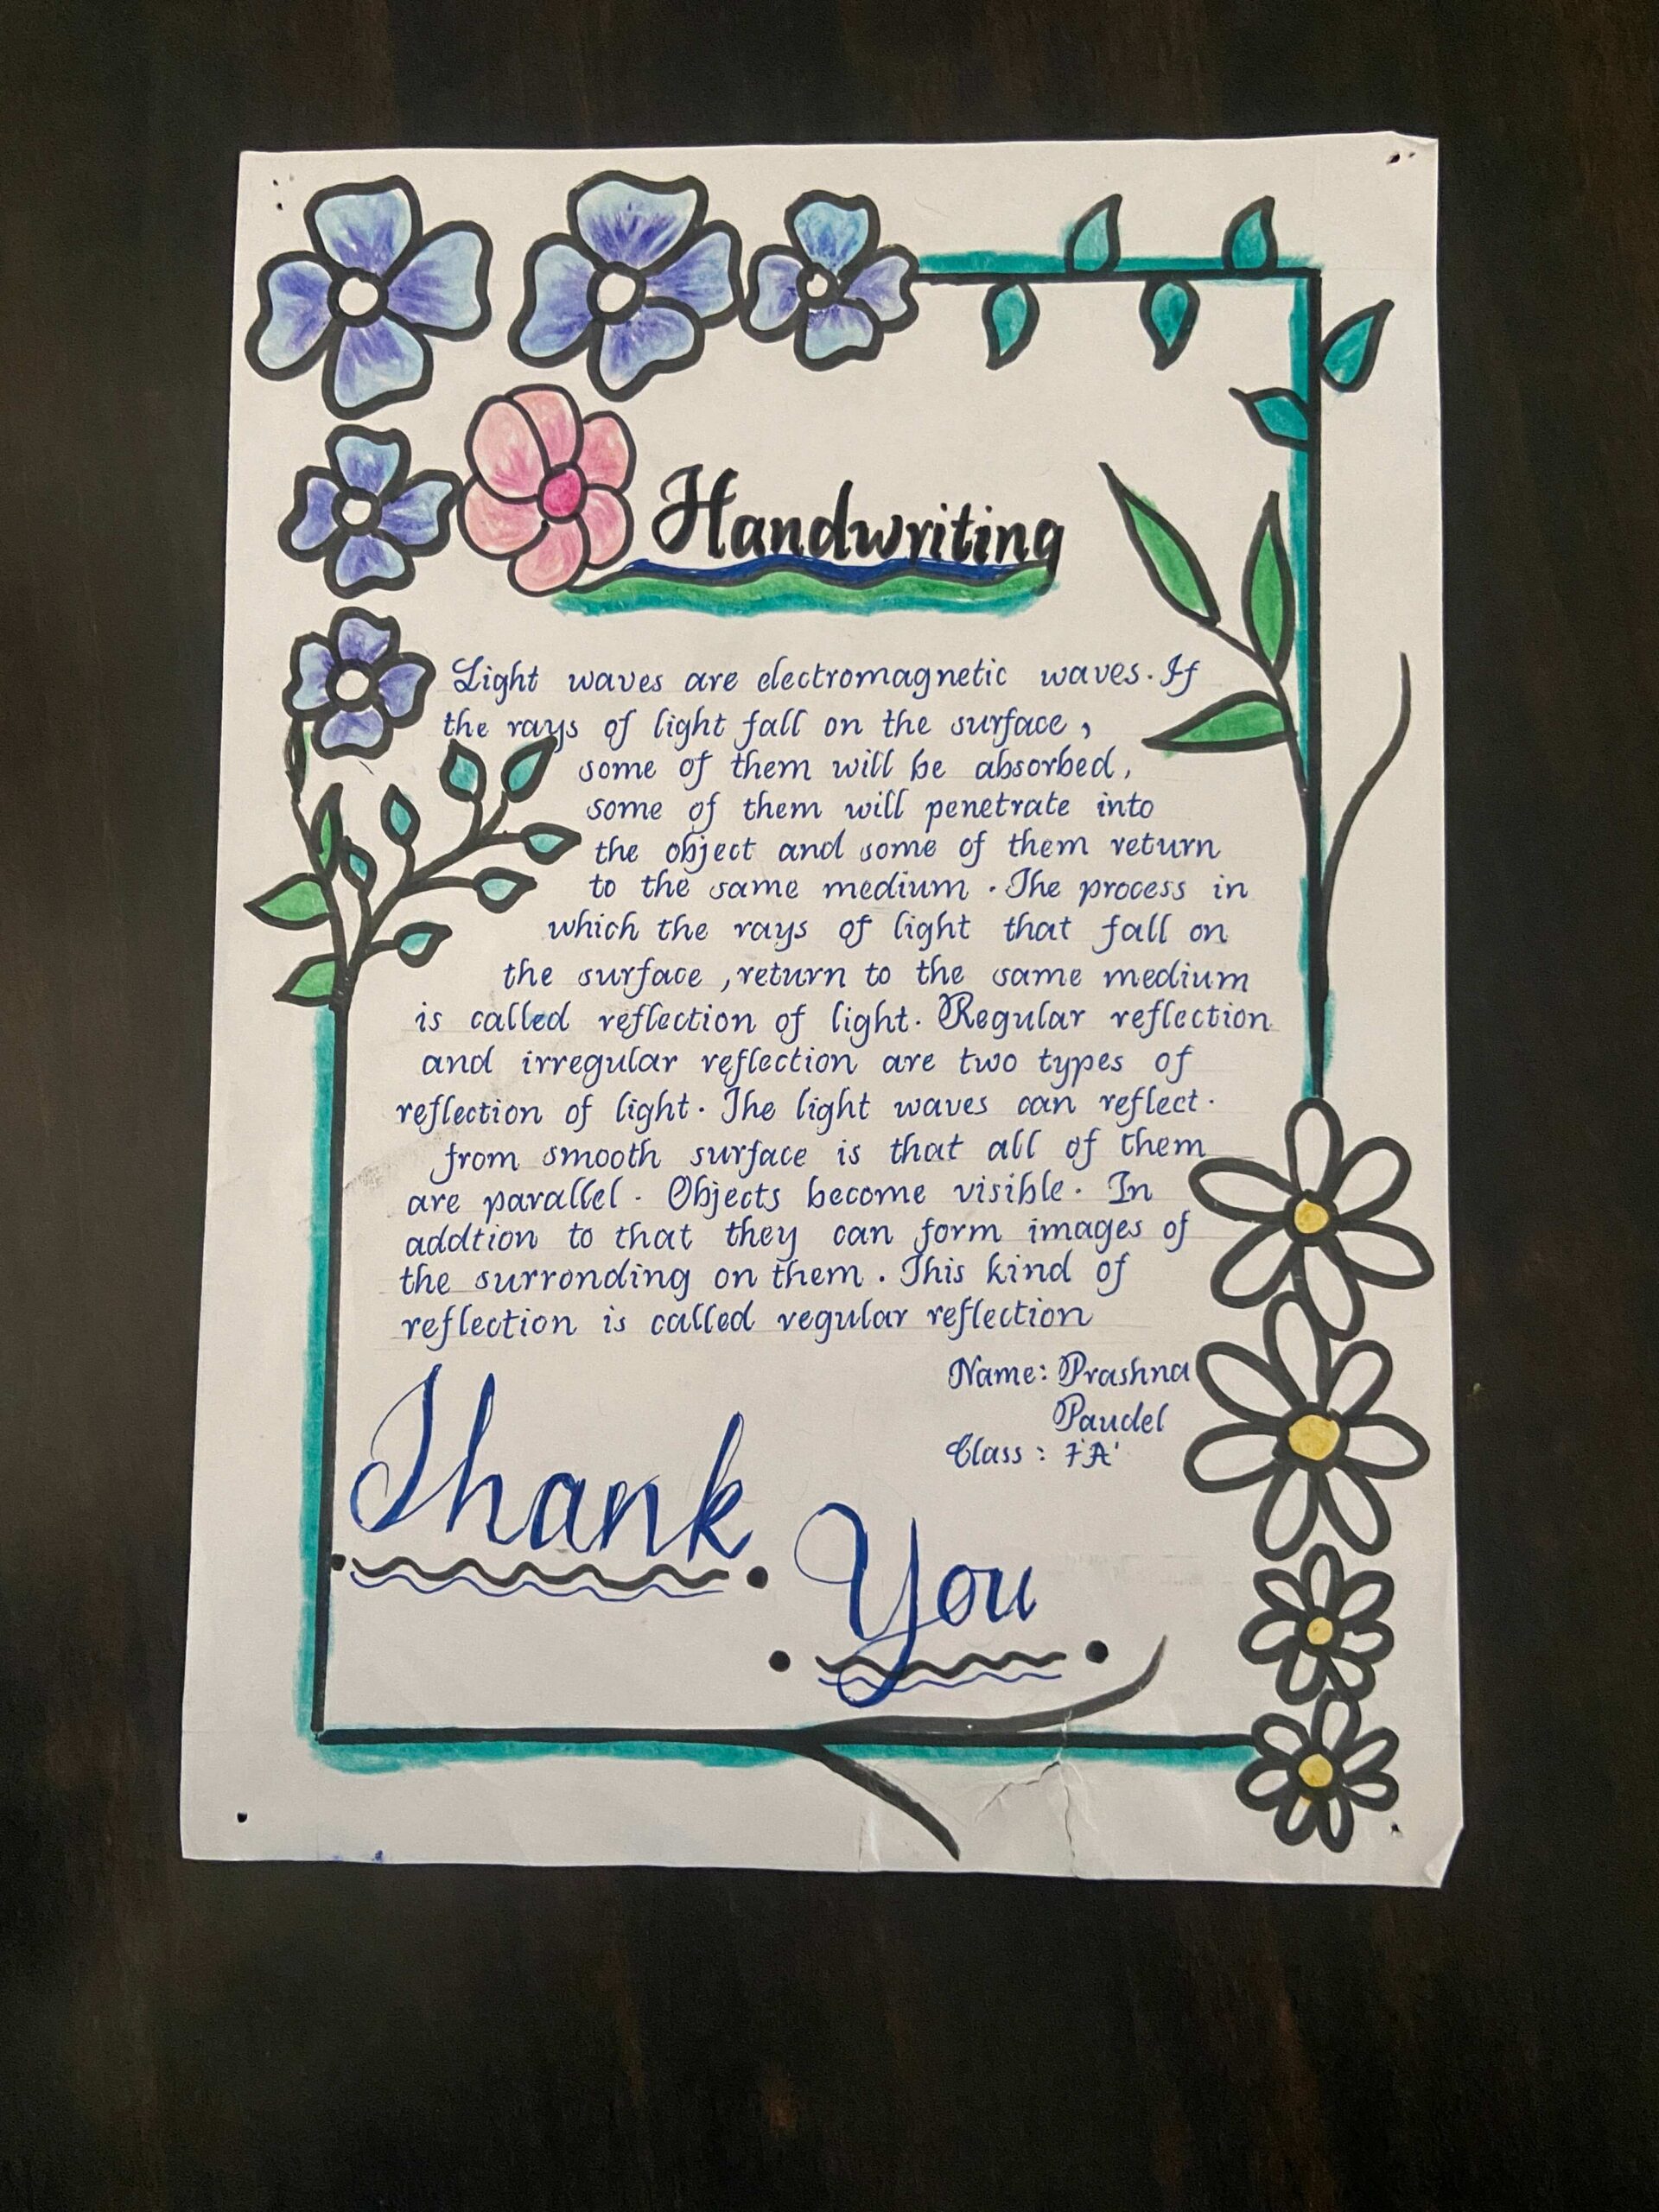 Handwriting
Light waves are electromagnetic waves. If
the rays of light fall on the surface,
some of them will be absorbed,
some of them will penetrate into
the object and some of them return
to the same medium. The process in
which the rays of light that fall on
the surface, return to the same medium
is called reflection of light. Regular reflection
and irregular reflection are two types of
reflection of light. The light waves can reflect.
from smooth surface is that all of them
are parallel. Objects become visible. In
addtion to that they can form images of
the surronding on them. This kind of
reflection is called regular reflection
Name: Prashna
Paudel
Class: 7'A'
Thank
You